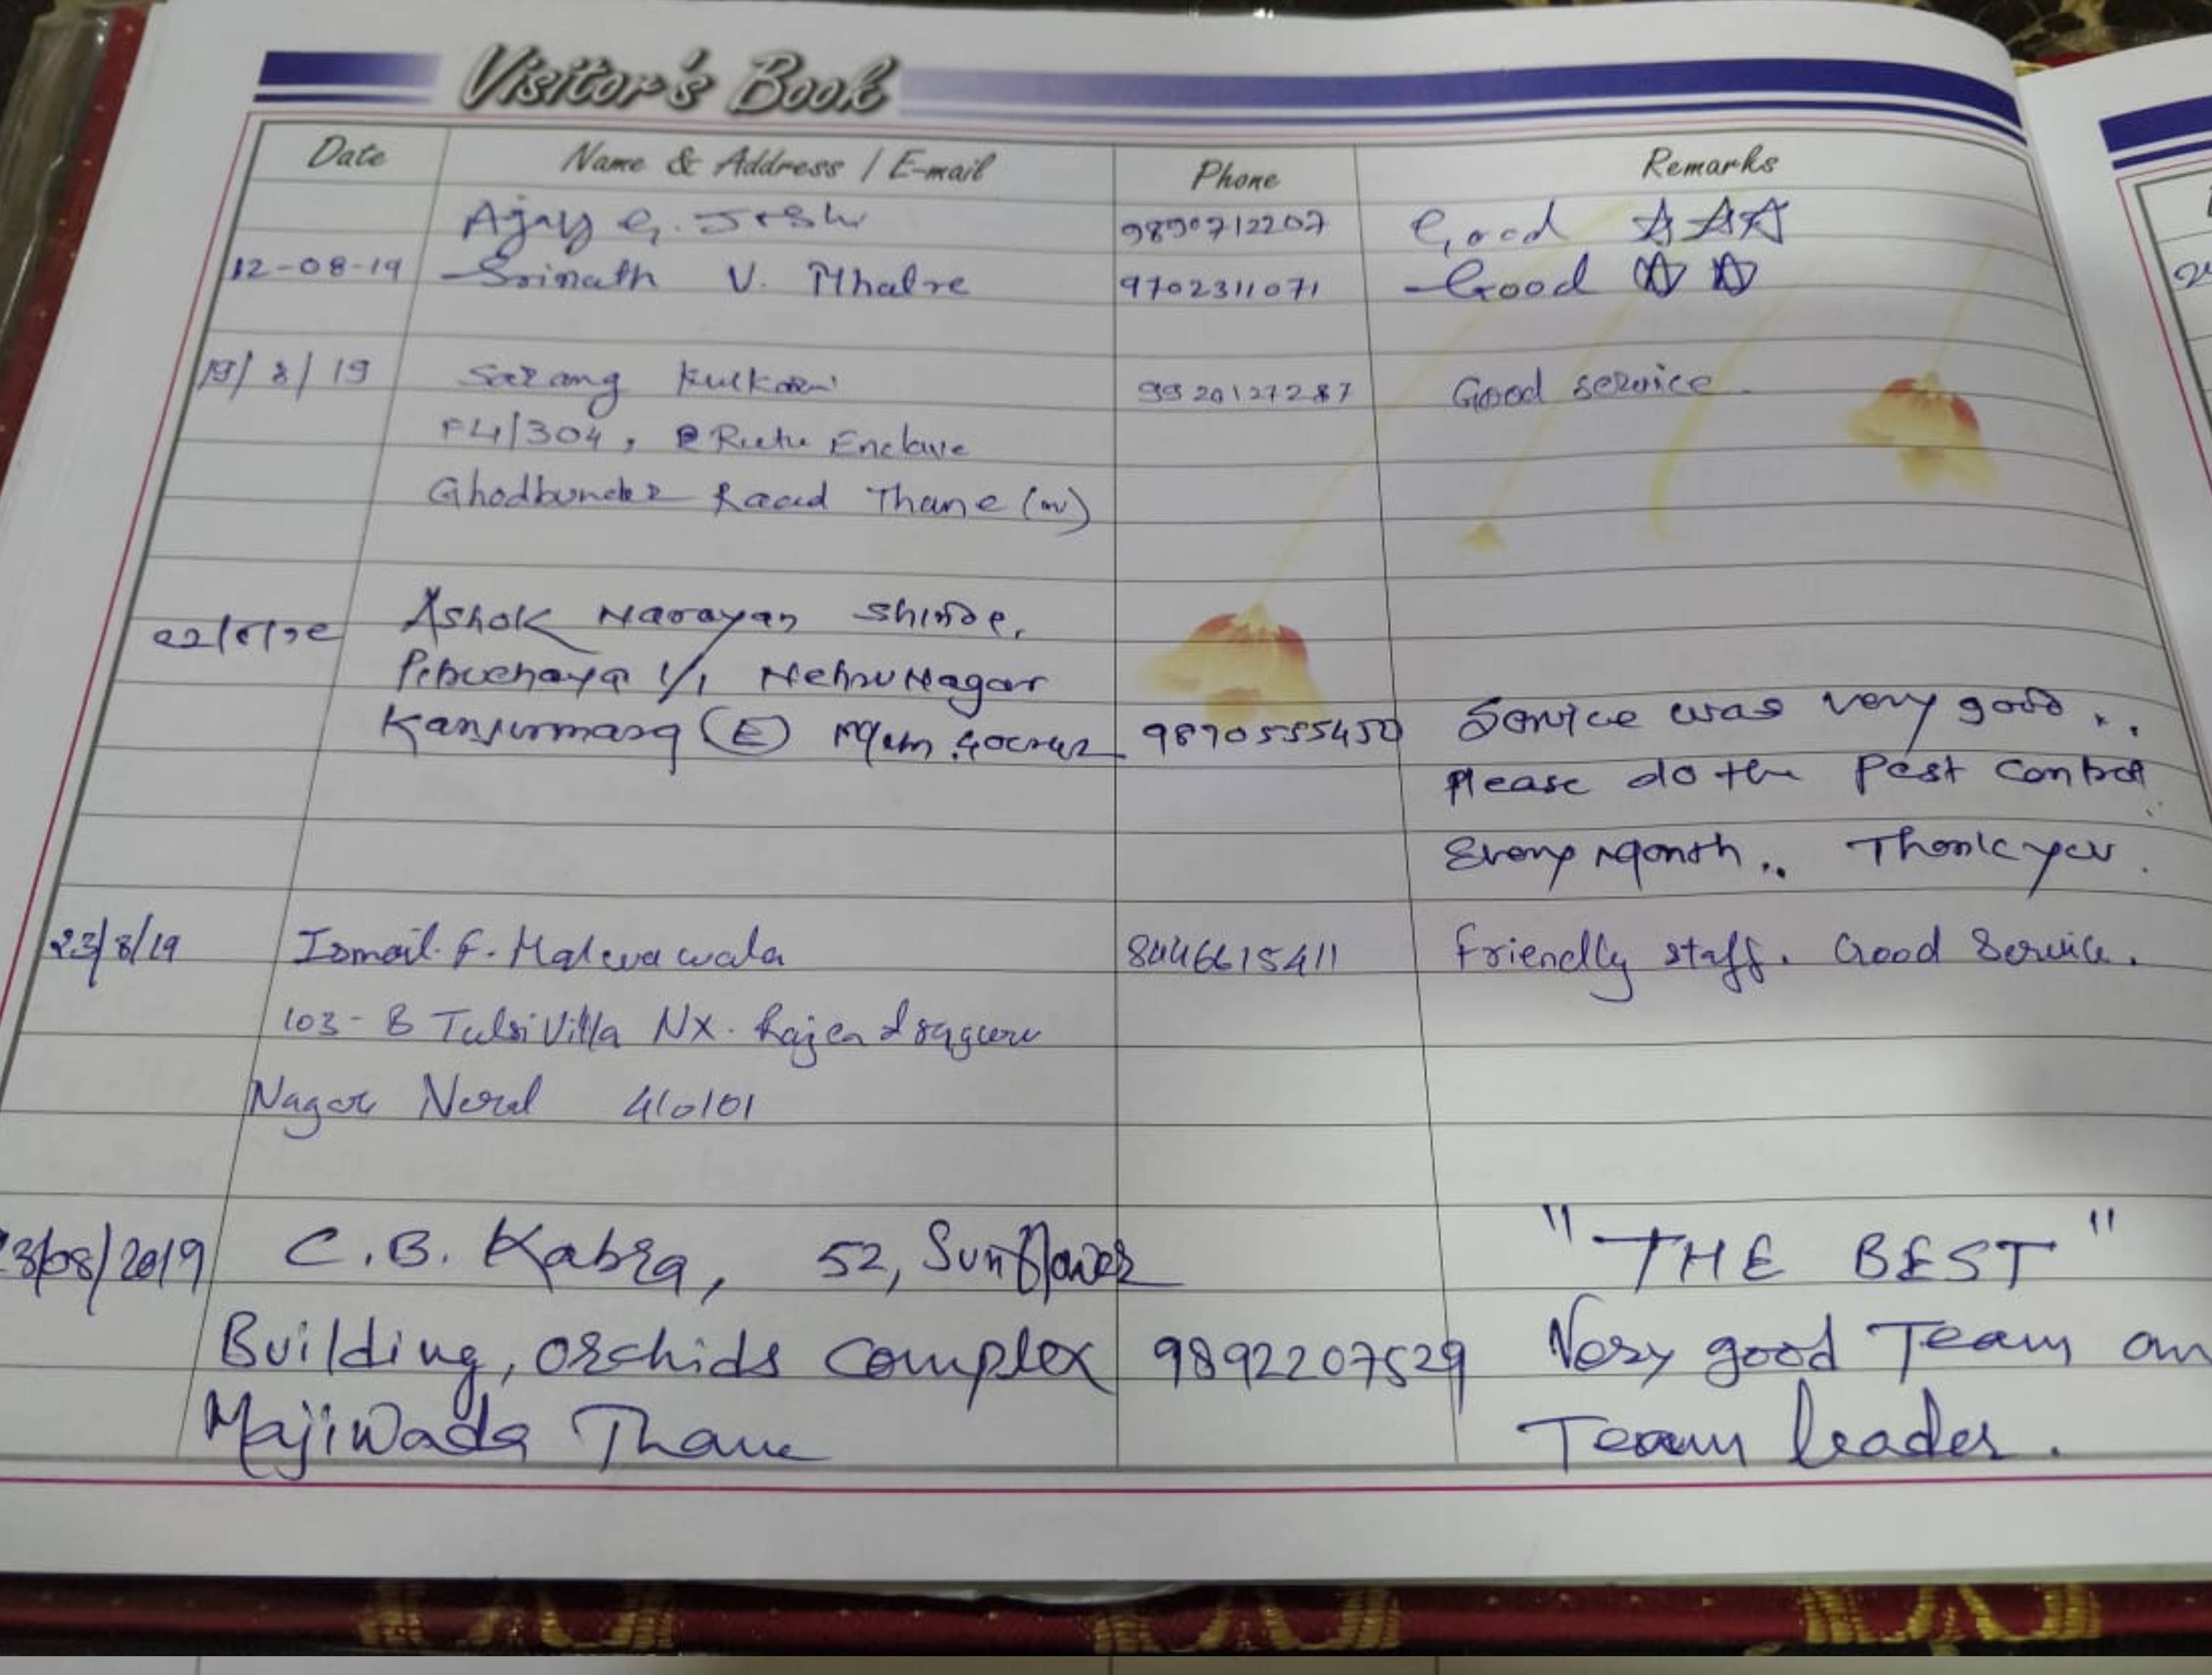 Visitor's Book
Date Name & Address / E-mail Phone Remarks
Ajay G. Joshi 9890712207 Good ☆☆☆
12-08-19 Srinath V. Mhatre 9702311071 Good ☆☆
19/8/19 Sarang Kulkarni 9920127287 Good service
F4/304, Rutu Enclave
Ghodbunder Raod Thane (w)
Ashok Narayan Shinde,
1/1 Nehru Nagar
Kanjurmarg (E) 9890555450 Service was very good..
Please do the Pest Control
Every Month.. Thank you.
23/8/19 Ismail. F. Malewawala 8446615411 Friendly staff. Good Service.
103-B Tulsi Villa NX. Rajendraguru
Nagar Neral 410101
3/08/2019 C.B. Kabra, 52, Sunflower "THE BEST"
Building, Orchids Complex 9892207529 Very good Team an
Majiwada Thane Team leader.